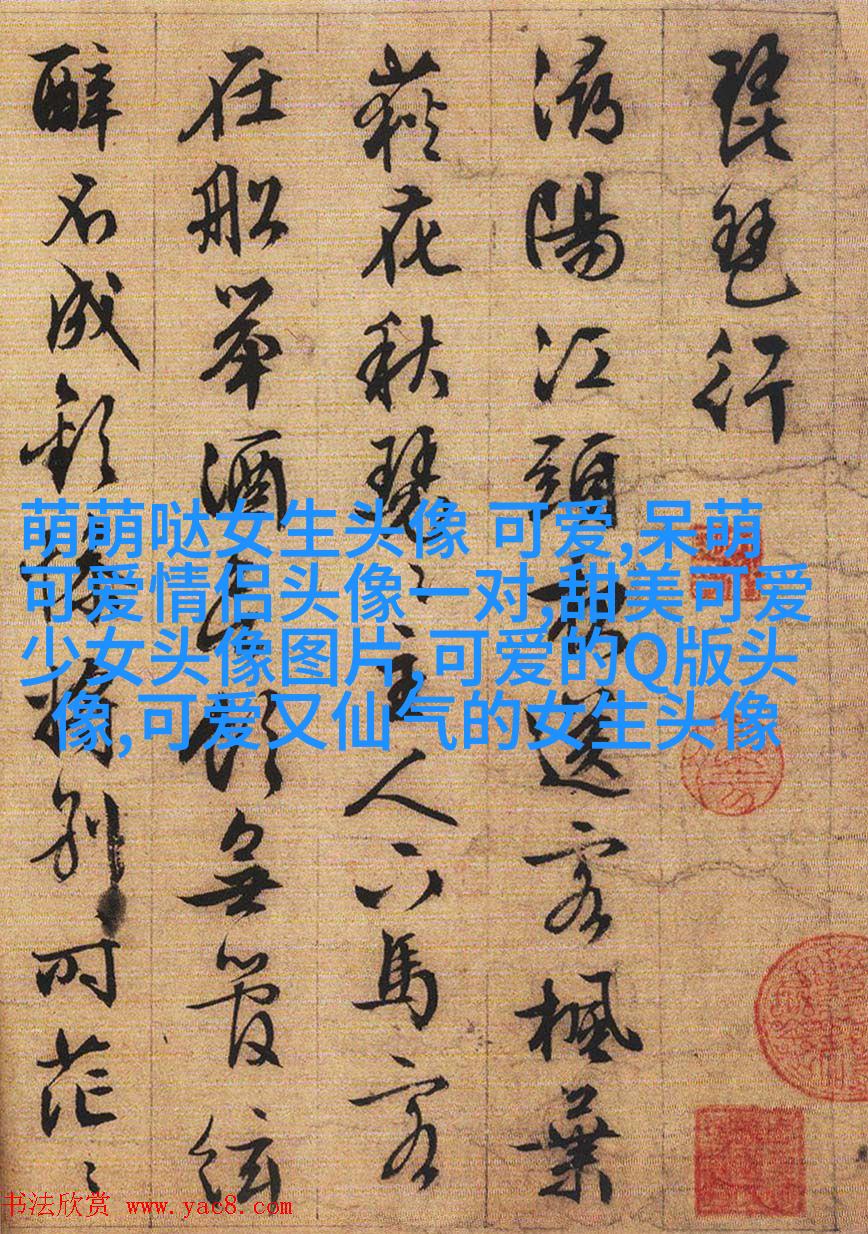 琵琶行
潯陽江頭夜送客楓葉
荻花秋瑟〻主人下馬客
在船舉酒欲飲無管絃
醉不成歡慘將別〻時茫〻
萌萌哒女生头像 可爱,呆萌
可爱情侣头像一对,甜美可爱
少女头像图片,可爱的Q版头
像,可爱又仙气的女生头像
书法欣赏 www.yac8.com